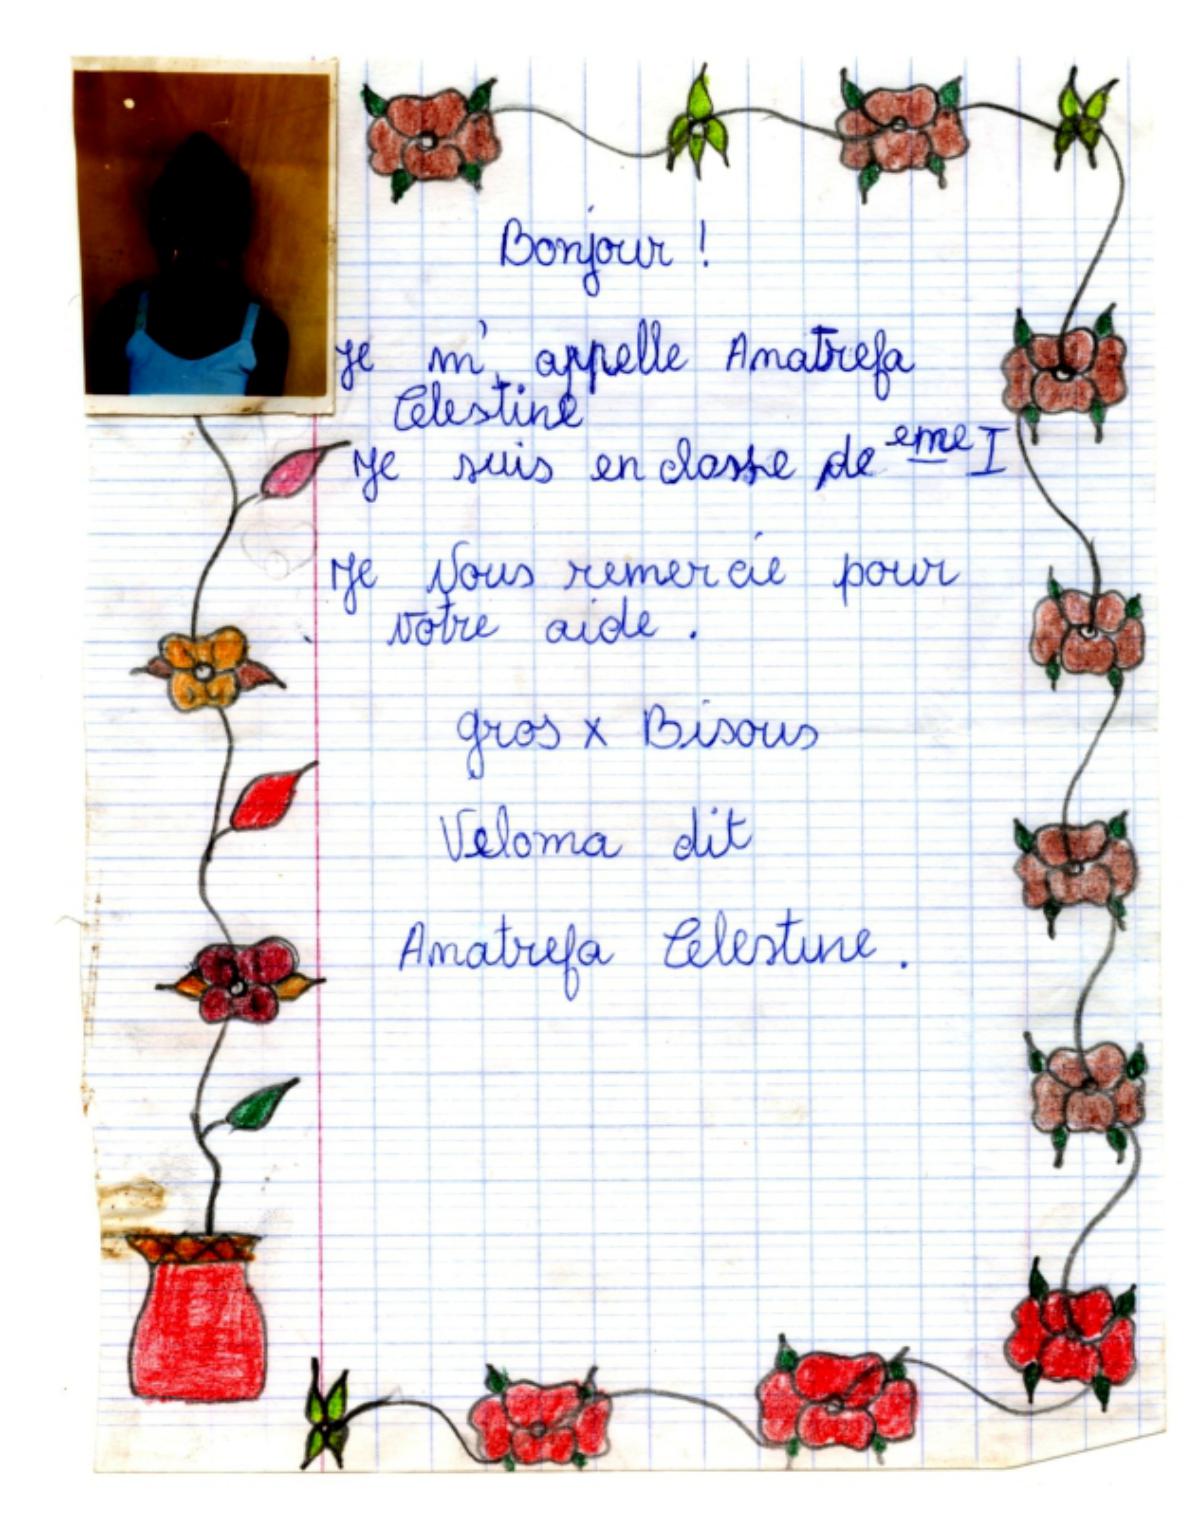 Bonjour !
Je m' appelle Anatrefa
Célestine
Je suis en classe de eme I
Je Vous remercie pour
votre aide .
gros x Bisous
Veloma dit
Anatrefa Célestine .